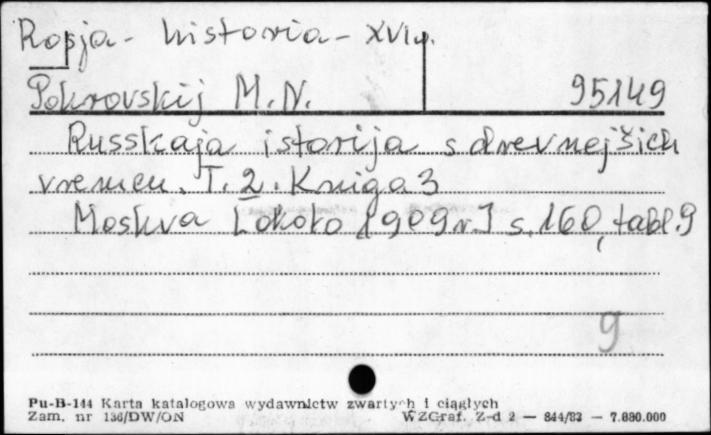 Rosja - historia - XVI w.
Pokrovskij M.N. 95149
Russkaja istorija s drevnejšich
vremen. T. 2. Kniga 3
Moskva [około 1909 r.] s. 160, tabl. 9
9
Pu-B-144 Karta katalogowa wydawnictw zwartych i ciągłych
Zam. nr 136/DW/ON WZGraf. Z-d 2 — 844/83 — 7.880.000